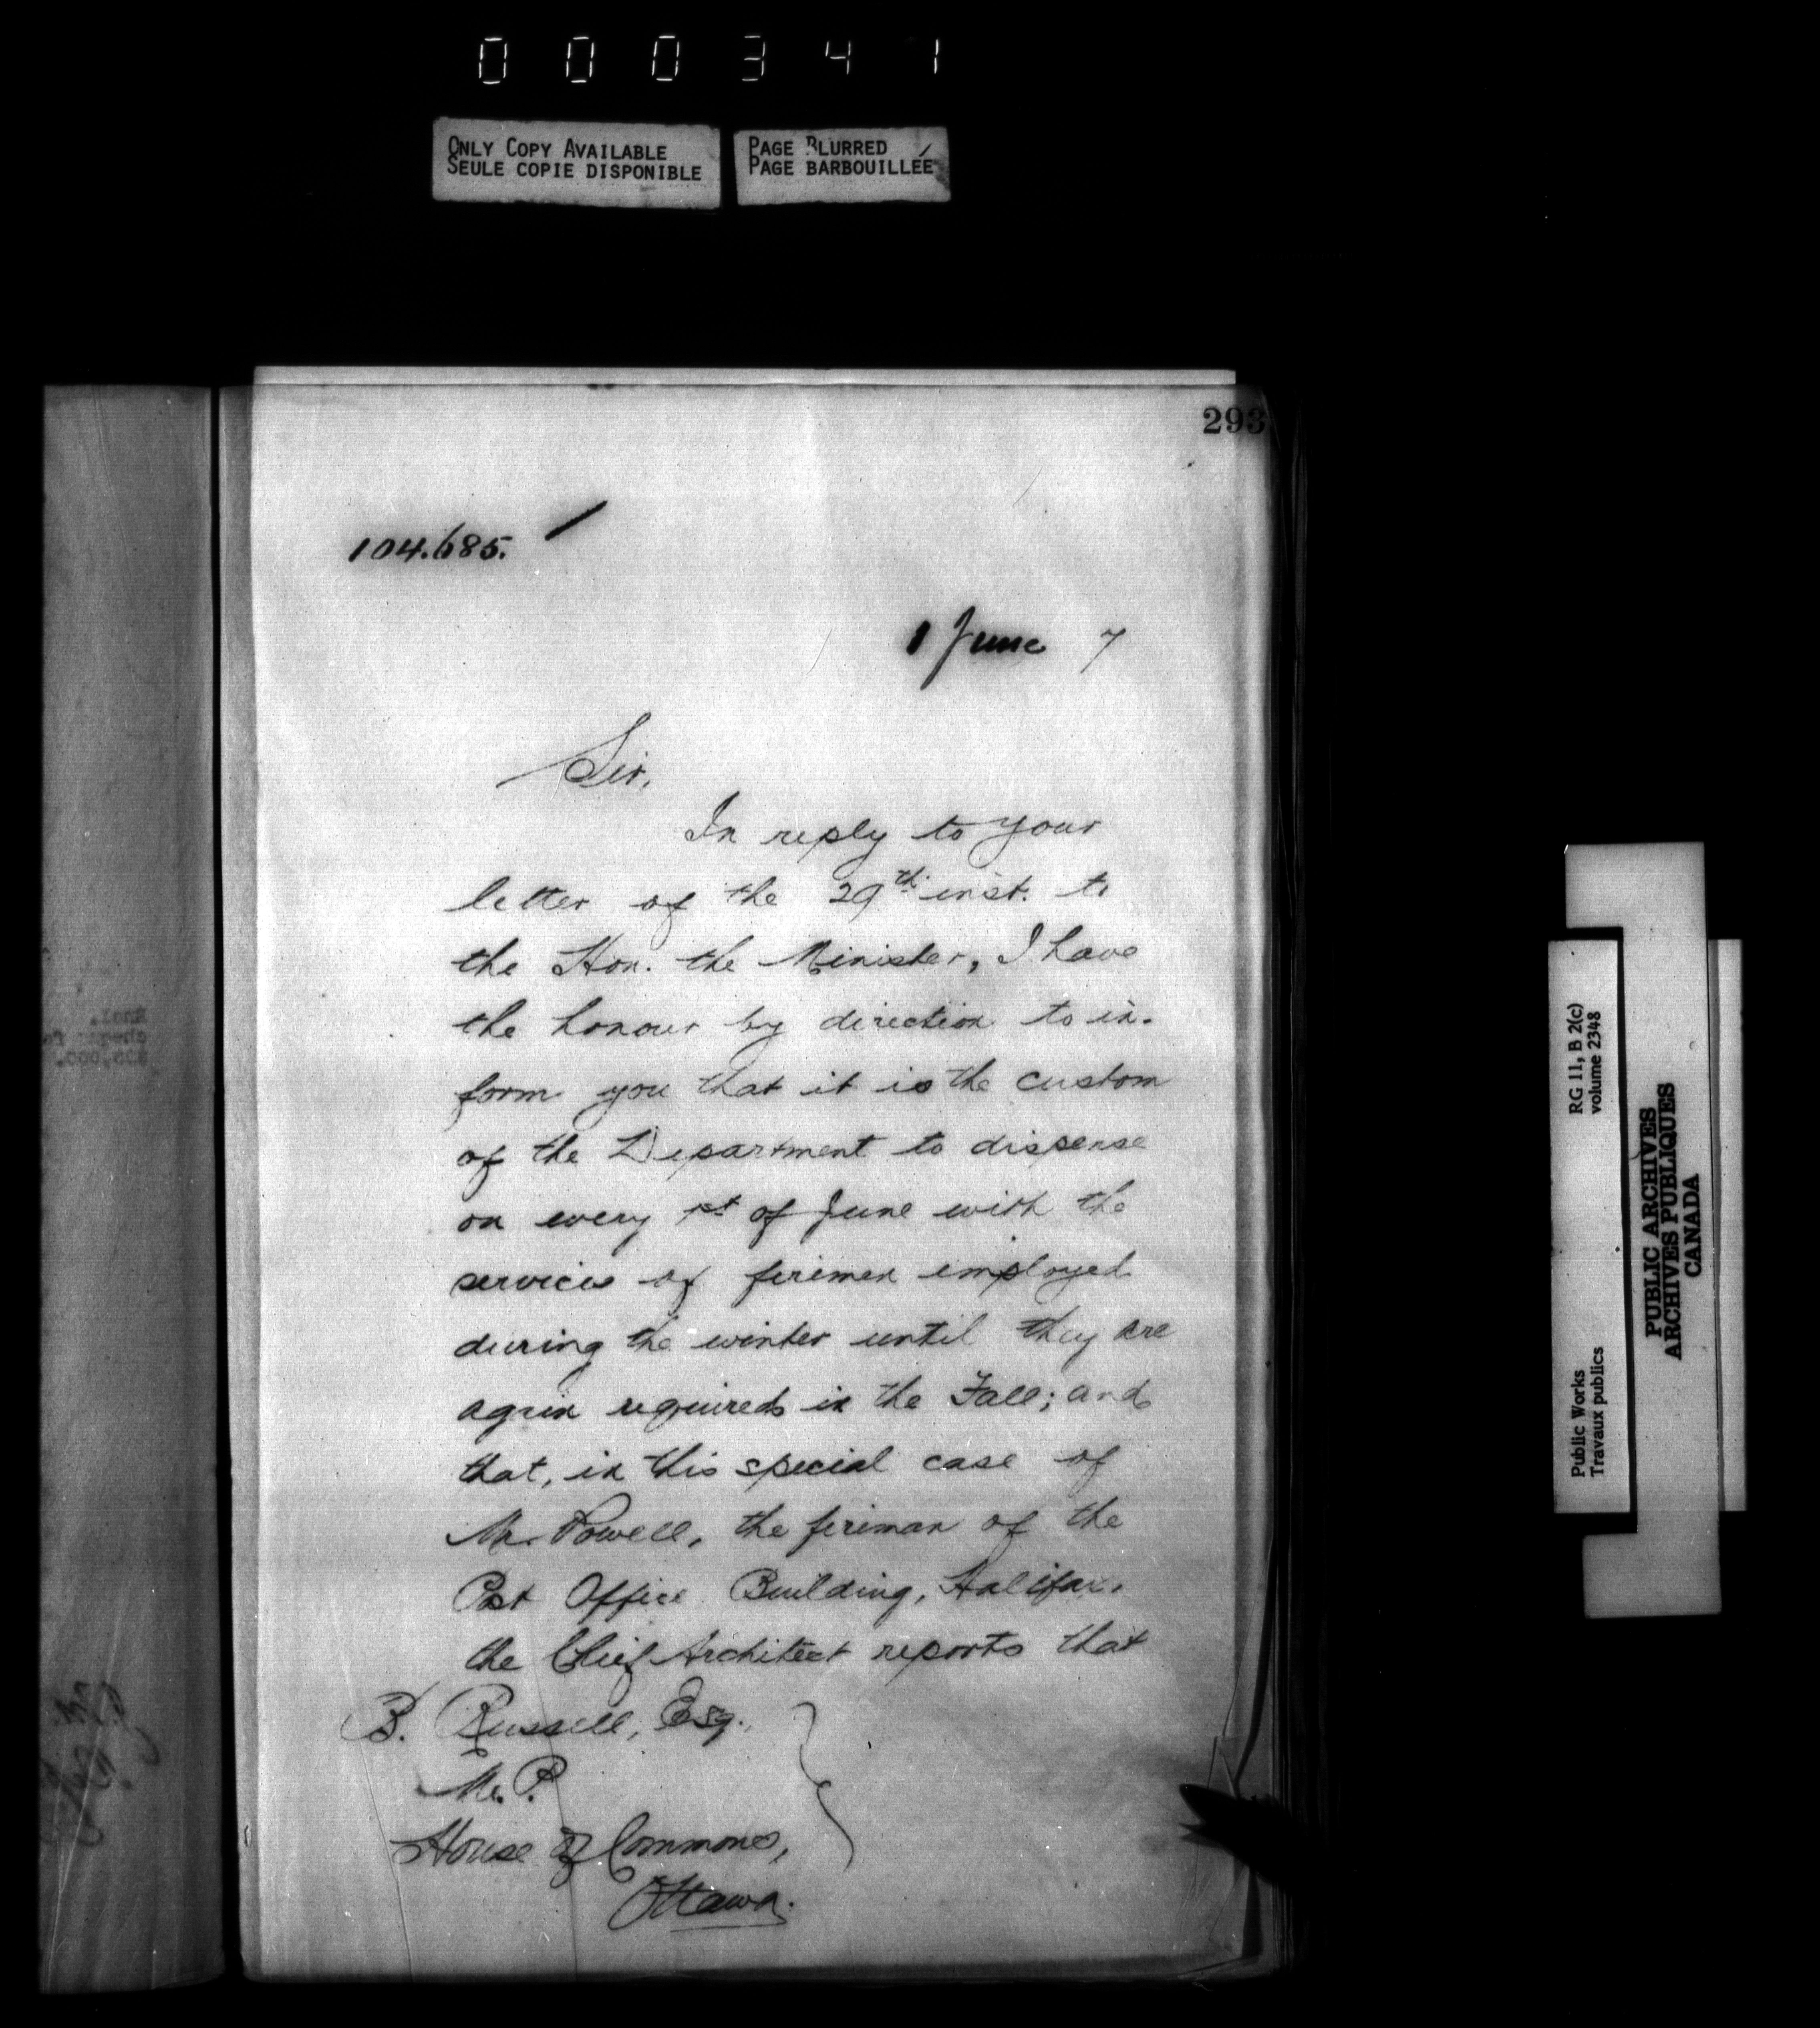 000341
ONLY COPY AVAILABLE
SEULE COPIE DISPONIBLE
PAGE BLURRED
PAGE BARBOUILLÉE
293
104.685.
1 June 7
Sir,
In reply to your
letter of the 29th inst. to
the Hon. the Minister, I have
the honour by direction to in-
form you that it is the custom
of the Department to dispense
on every 1st of June with the
services of firemen employed
during the winter until they are
again required in the Fall; and
that, in this special case of
Mr. Powell, the fireman of the
Post Office Building, Halifax,
the Chief Architect reports that
B. Russell, Esq.,
M.P.
House of Commons,
Ottawa.
RG 11, B 2(c)
volume 2348
Public Works
Travaux publics
PUBLIC ARCHIVES
ARCHIVES PUBLIQUES
CANADA